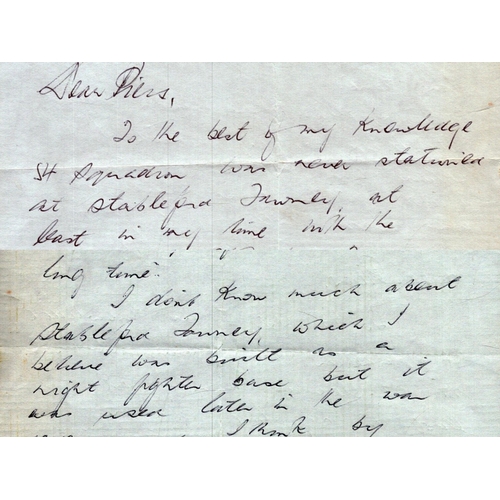 Dear Piers,
To the best of my knowledge
54 Squadron was never stationed
at Stapleford Tawney, at
least in my time with the
long time."
I don't know much about
Stapleford Tawney, which I
believe was built as a
night fighter base but it
was used later in the war
I think by